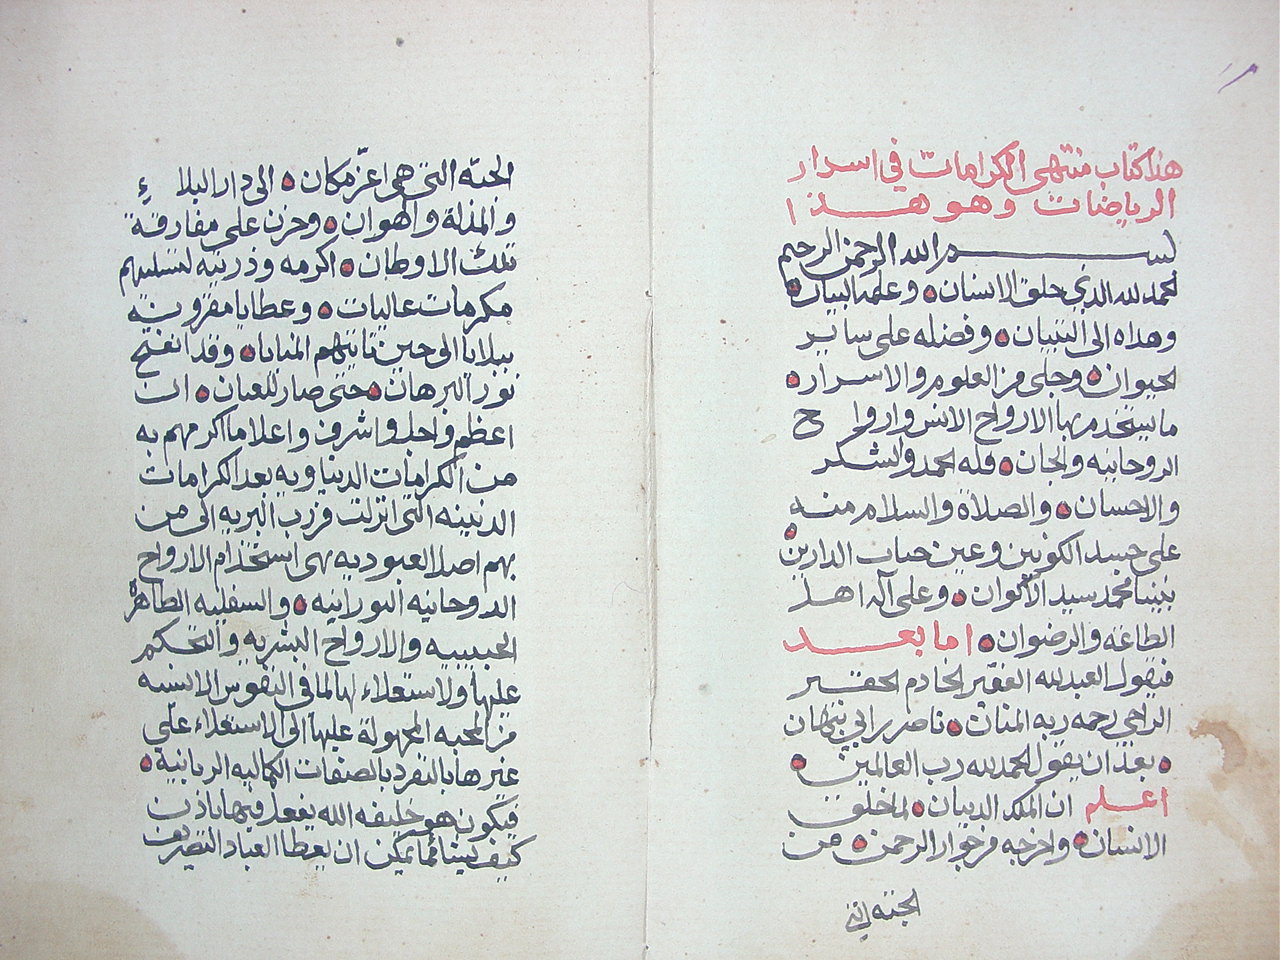 هذا كتاب منتهى الكرامات في اسرار
الرياضات وهو هذا
بسم الله الرحمن الرحيم
الحمد لله الذي خلق الانسان وعلمه البيان
وهداه الى التبيان وفضله على ساير
الحيوان وجلى من العلوم والاسرار
ما يستخدم بها الارواح الانس وارواح
الروحانيه والجان فله الحمد والشكر
والاحسان والصلاة والسلام منه
على سيد الكونين وعين حياب الدارين
نبينا محمد سيد الاكوان وعلى آله اهل
الطاعه والرضوان اما بعد
فيقول العبد لله الفقير الخادم الحقير
الراجي رحمه ربه المنان ناصر ابي نبهان
بعد ان يقول الحمد لله رب العالمين
اعلم ان الملك الديان لما خلق
الانسان واخرجه من جوار الرحمن من
الجنه التي
الجنه التي هي اعز مكان الى دار البلاء
والمذلة والهوان وحزن على مفارقة
تلك الاوطان اكرمه وذريته لتسليهم
مكرمات عاليات وعطايا مقرونة
ببلايا الى حين تاتيهم المنايا وقد اتضح
نور البرهان حتى صار للعيان ان
اعظم واجل واشرف واعلا ما اكرمهم به
من الكرامات الدنيا ويه بعد الكرامات
الدينيه التي انزلت من رب البريه الى من
بهم اصل العبوديه هي استخدام الارواح
الروحانيه النورانيه والسفليه الطاهره
الخبيثيه والارواح البشريه والتحكم
عليها ولاستعلاء لها لما في النفوس الانسيه
من المحبه المجهولة عليها الى الاستعلاء على
غيرها بالتفرد بالصفات الكماليه الربانية
فيكون هو خليفه الله يفعل فيها باذن
كيف يشا مما يمكن ان يعطا العباد التصريف